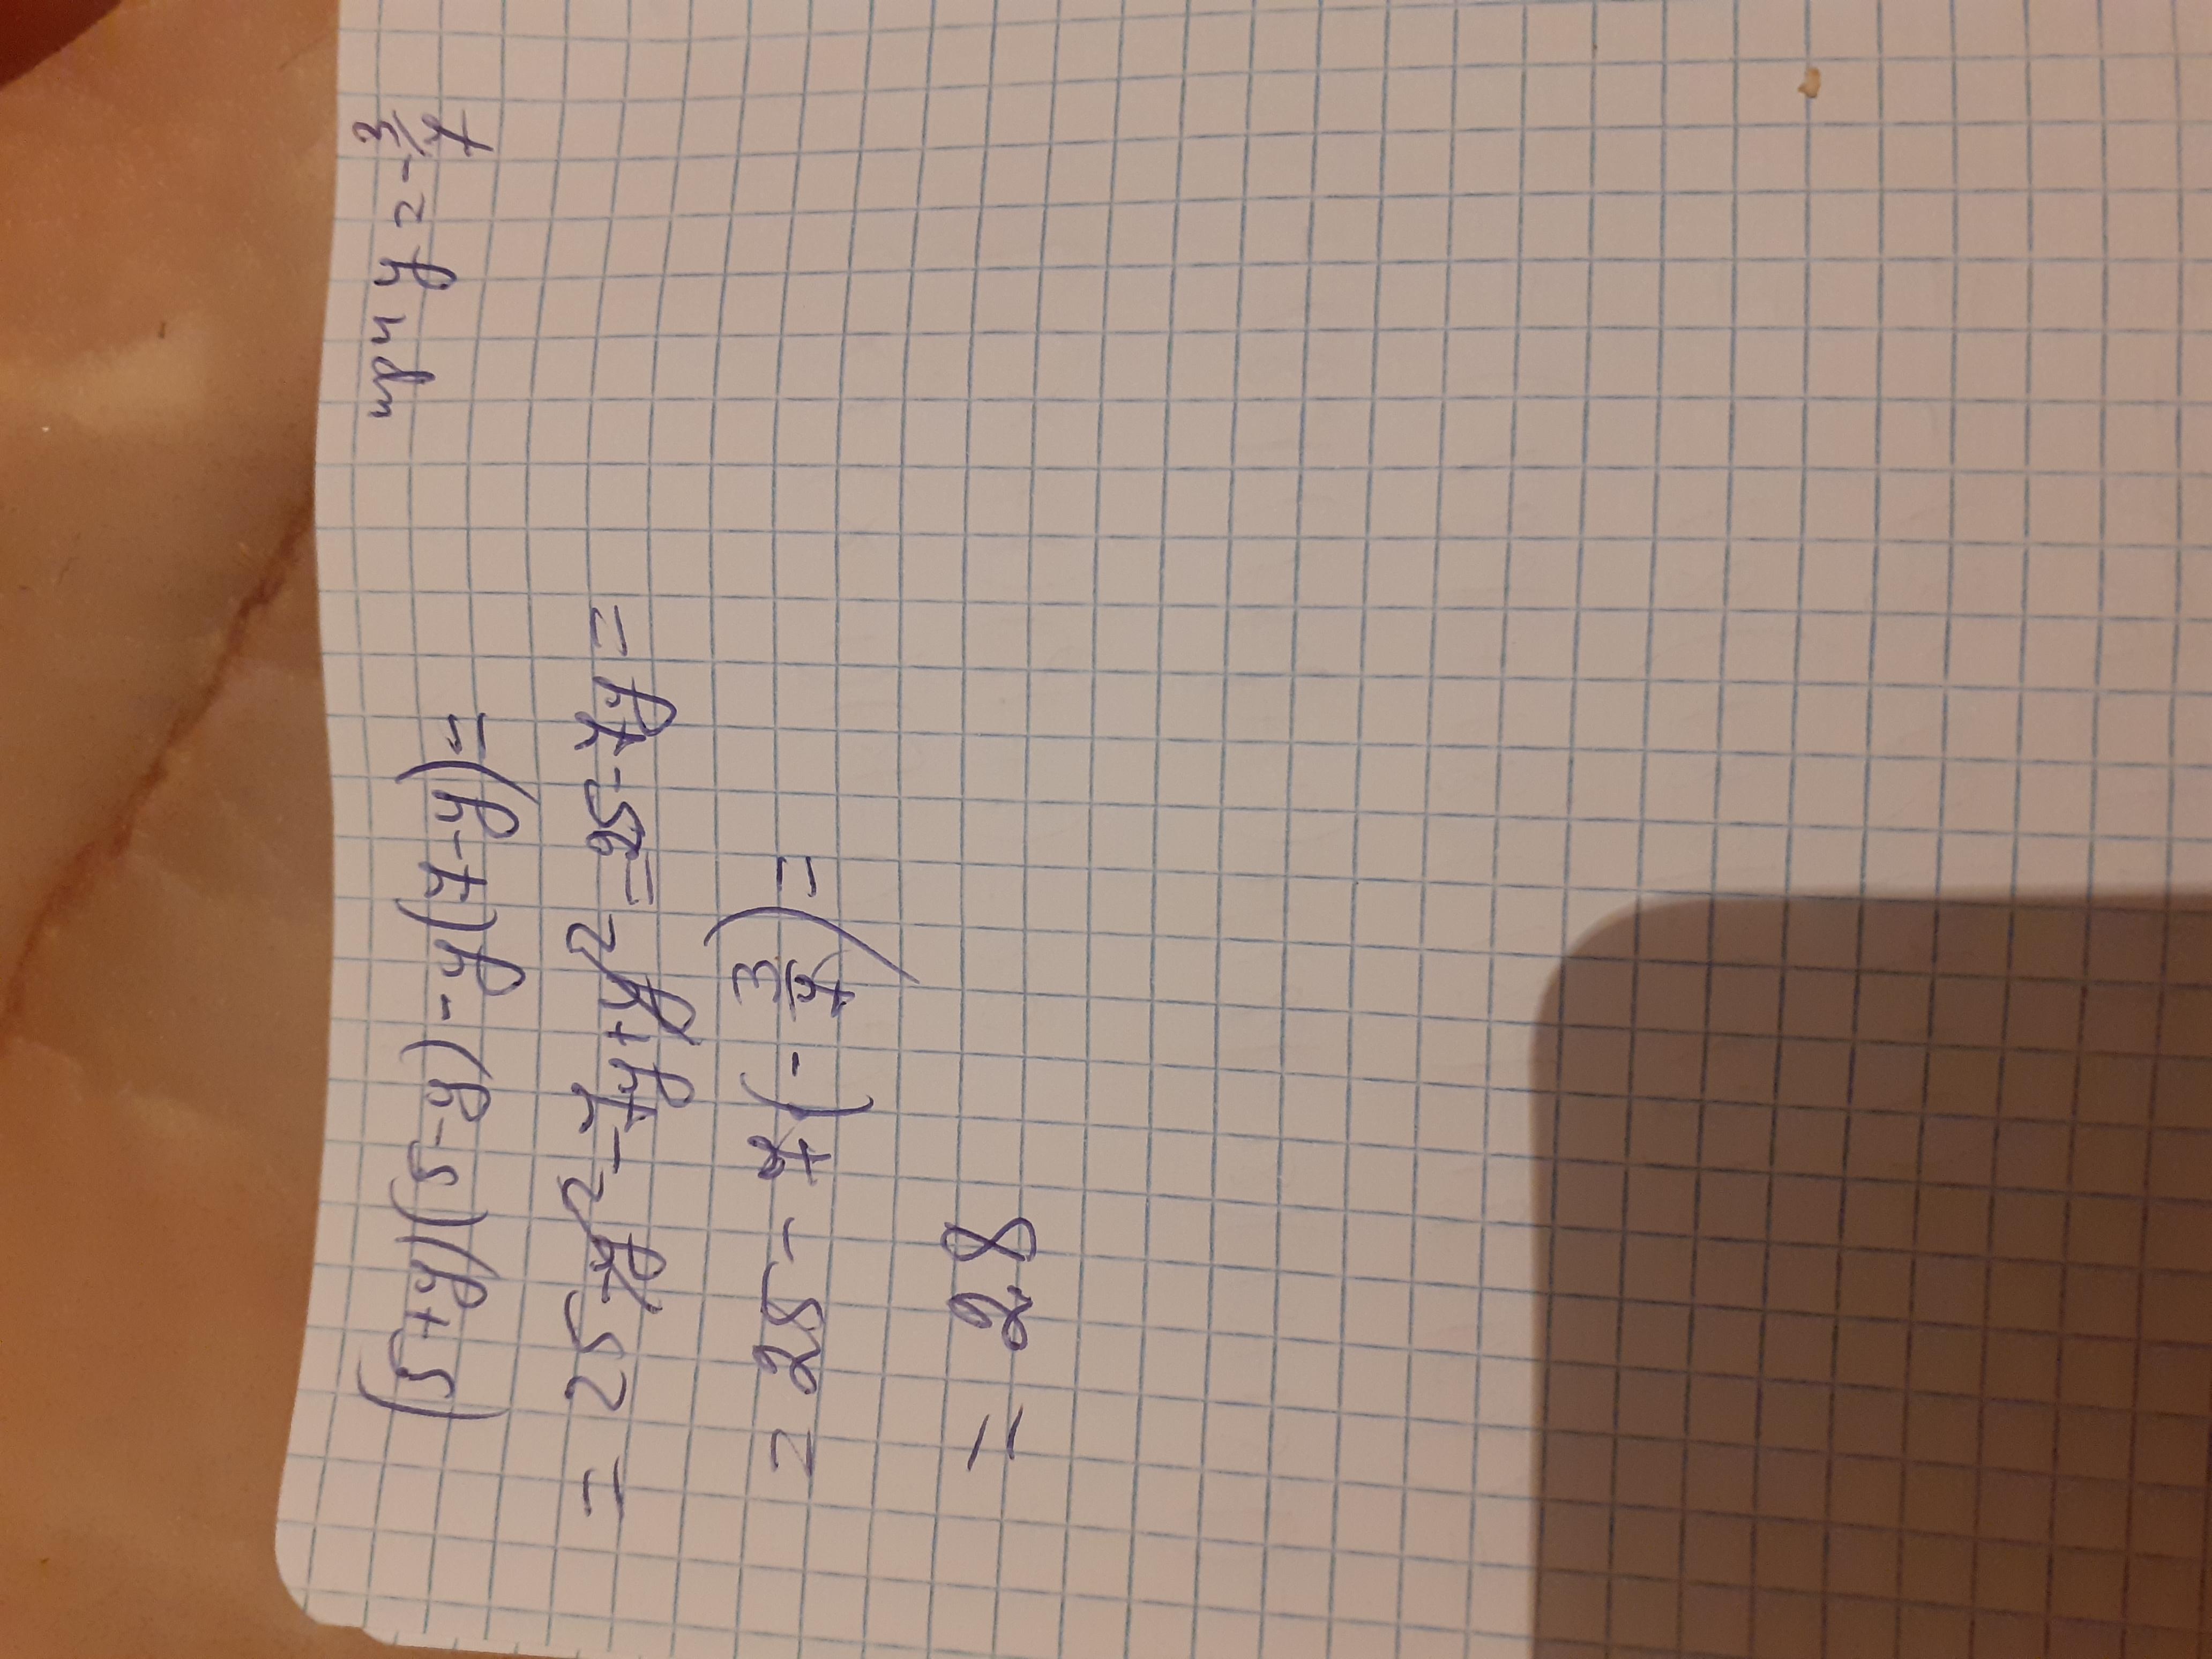 (5+y)(5-y)-y(7-y)= при y=-3/7
=25-y²-7y+y²=25-7y=
=25-7(-3/7)=
=28